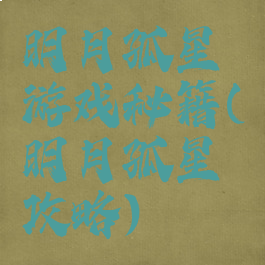 明月孤星
游戏秘籍(
明月孤星
攻略)